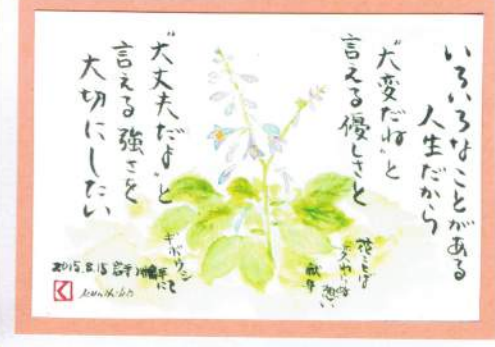 いろいろなことがある
人生だから
"大変だね"と
言える優しさと
"大丈夫だよ"と
言える強さを
大切にしたい
ギボウシ
2015.8.15